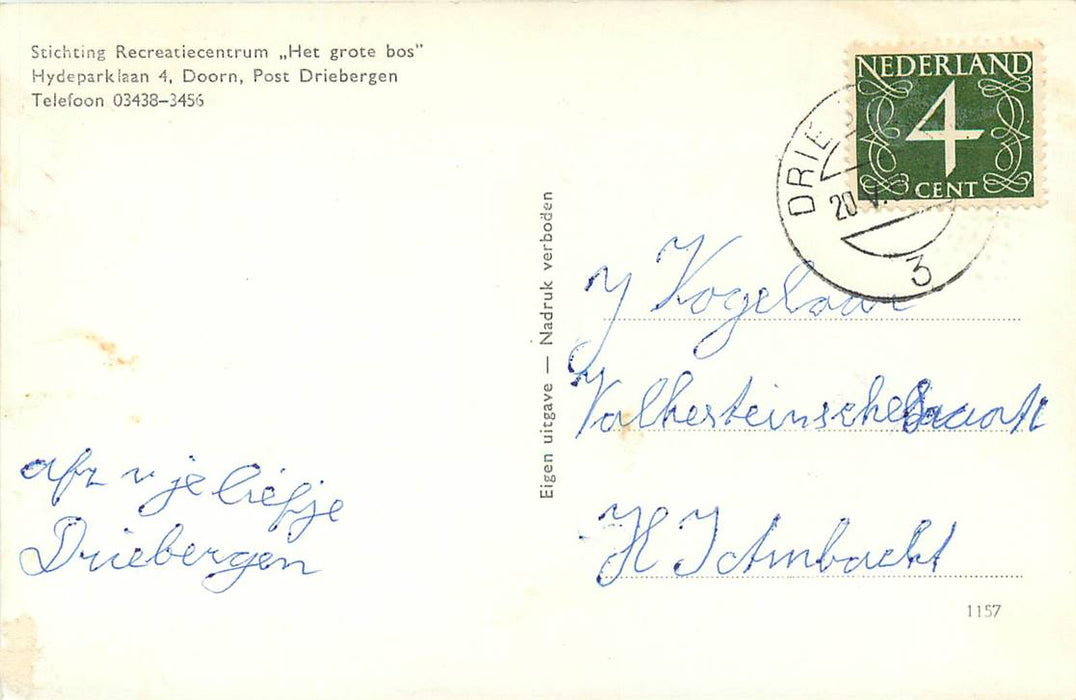 Stichting Recreatiecentrum „Het grote bos"
Hydeparklaan 4, Doorn, Post Driebergen
Telefoon 03438-3456
NEDERLAND
4
CENT
DRIE
20 V.
3
Eigen uitgave — Nadruk verboden
J Kogelaar
H I Ambacht
afz v je liefje
Driebergen
1157